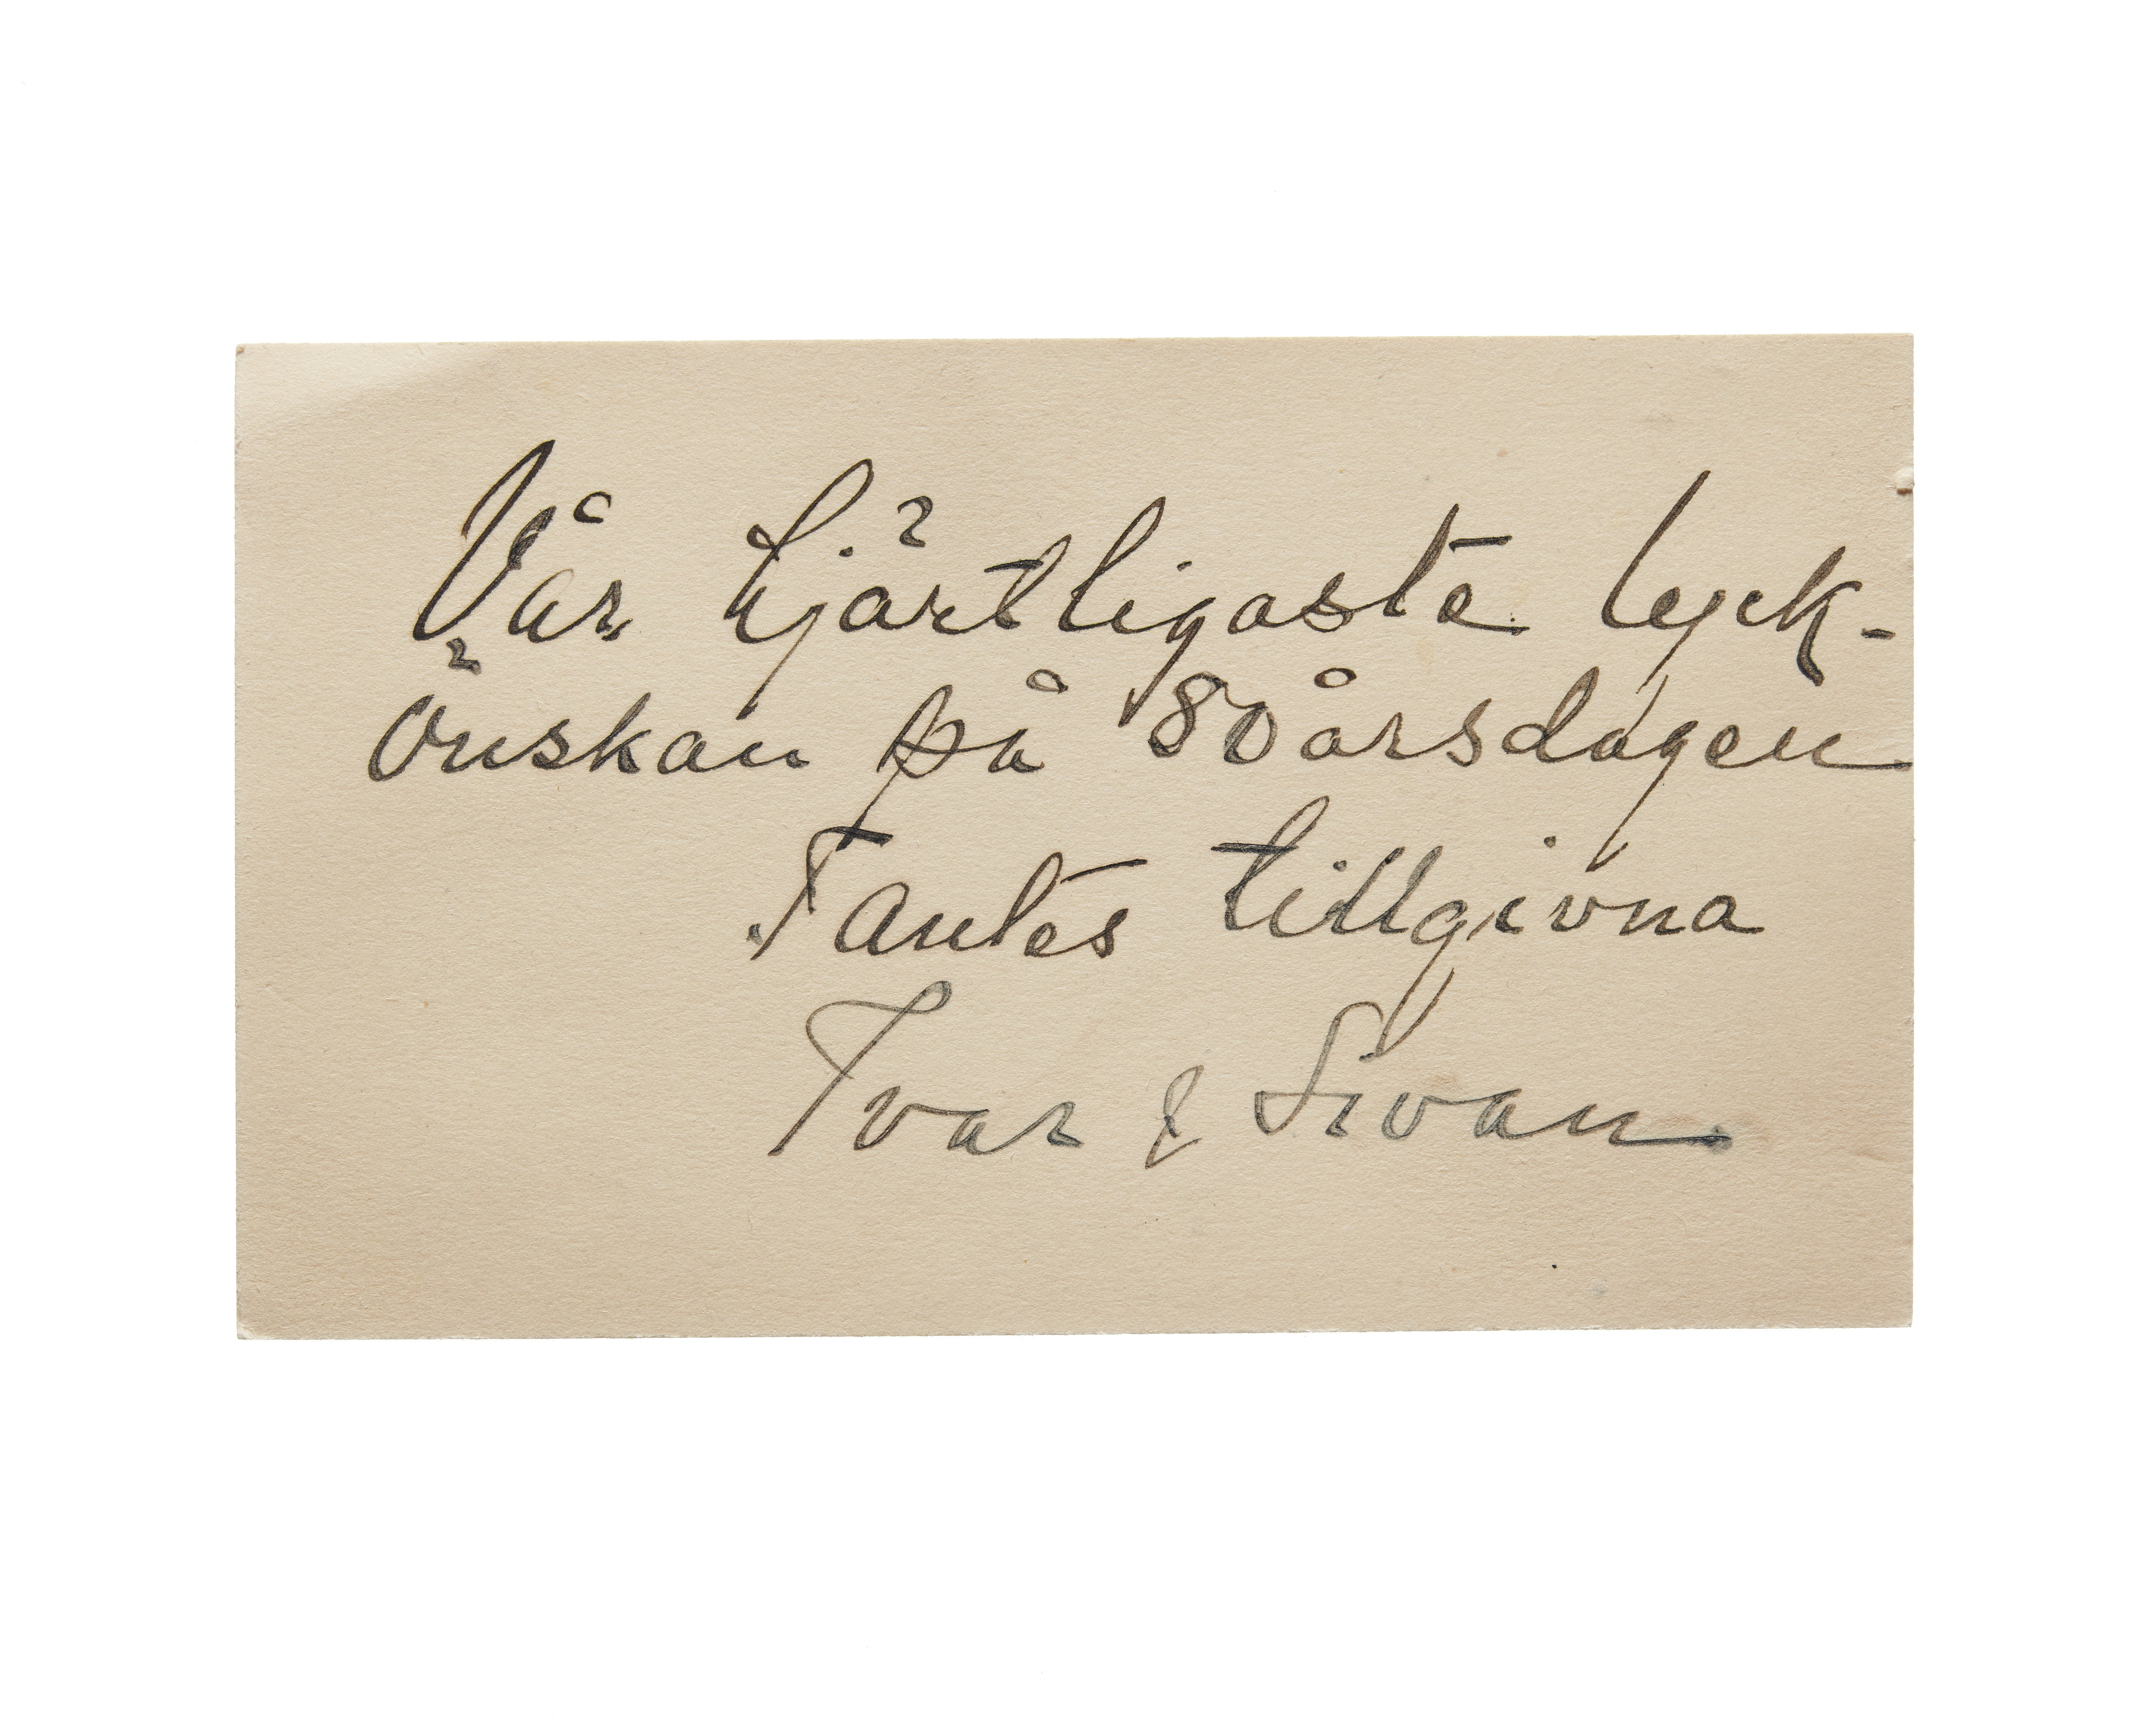 Vår hjärtligaste lyck-
önskan på 80årsdagen
Tantes tillgivna
Ivar & Sivan